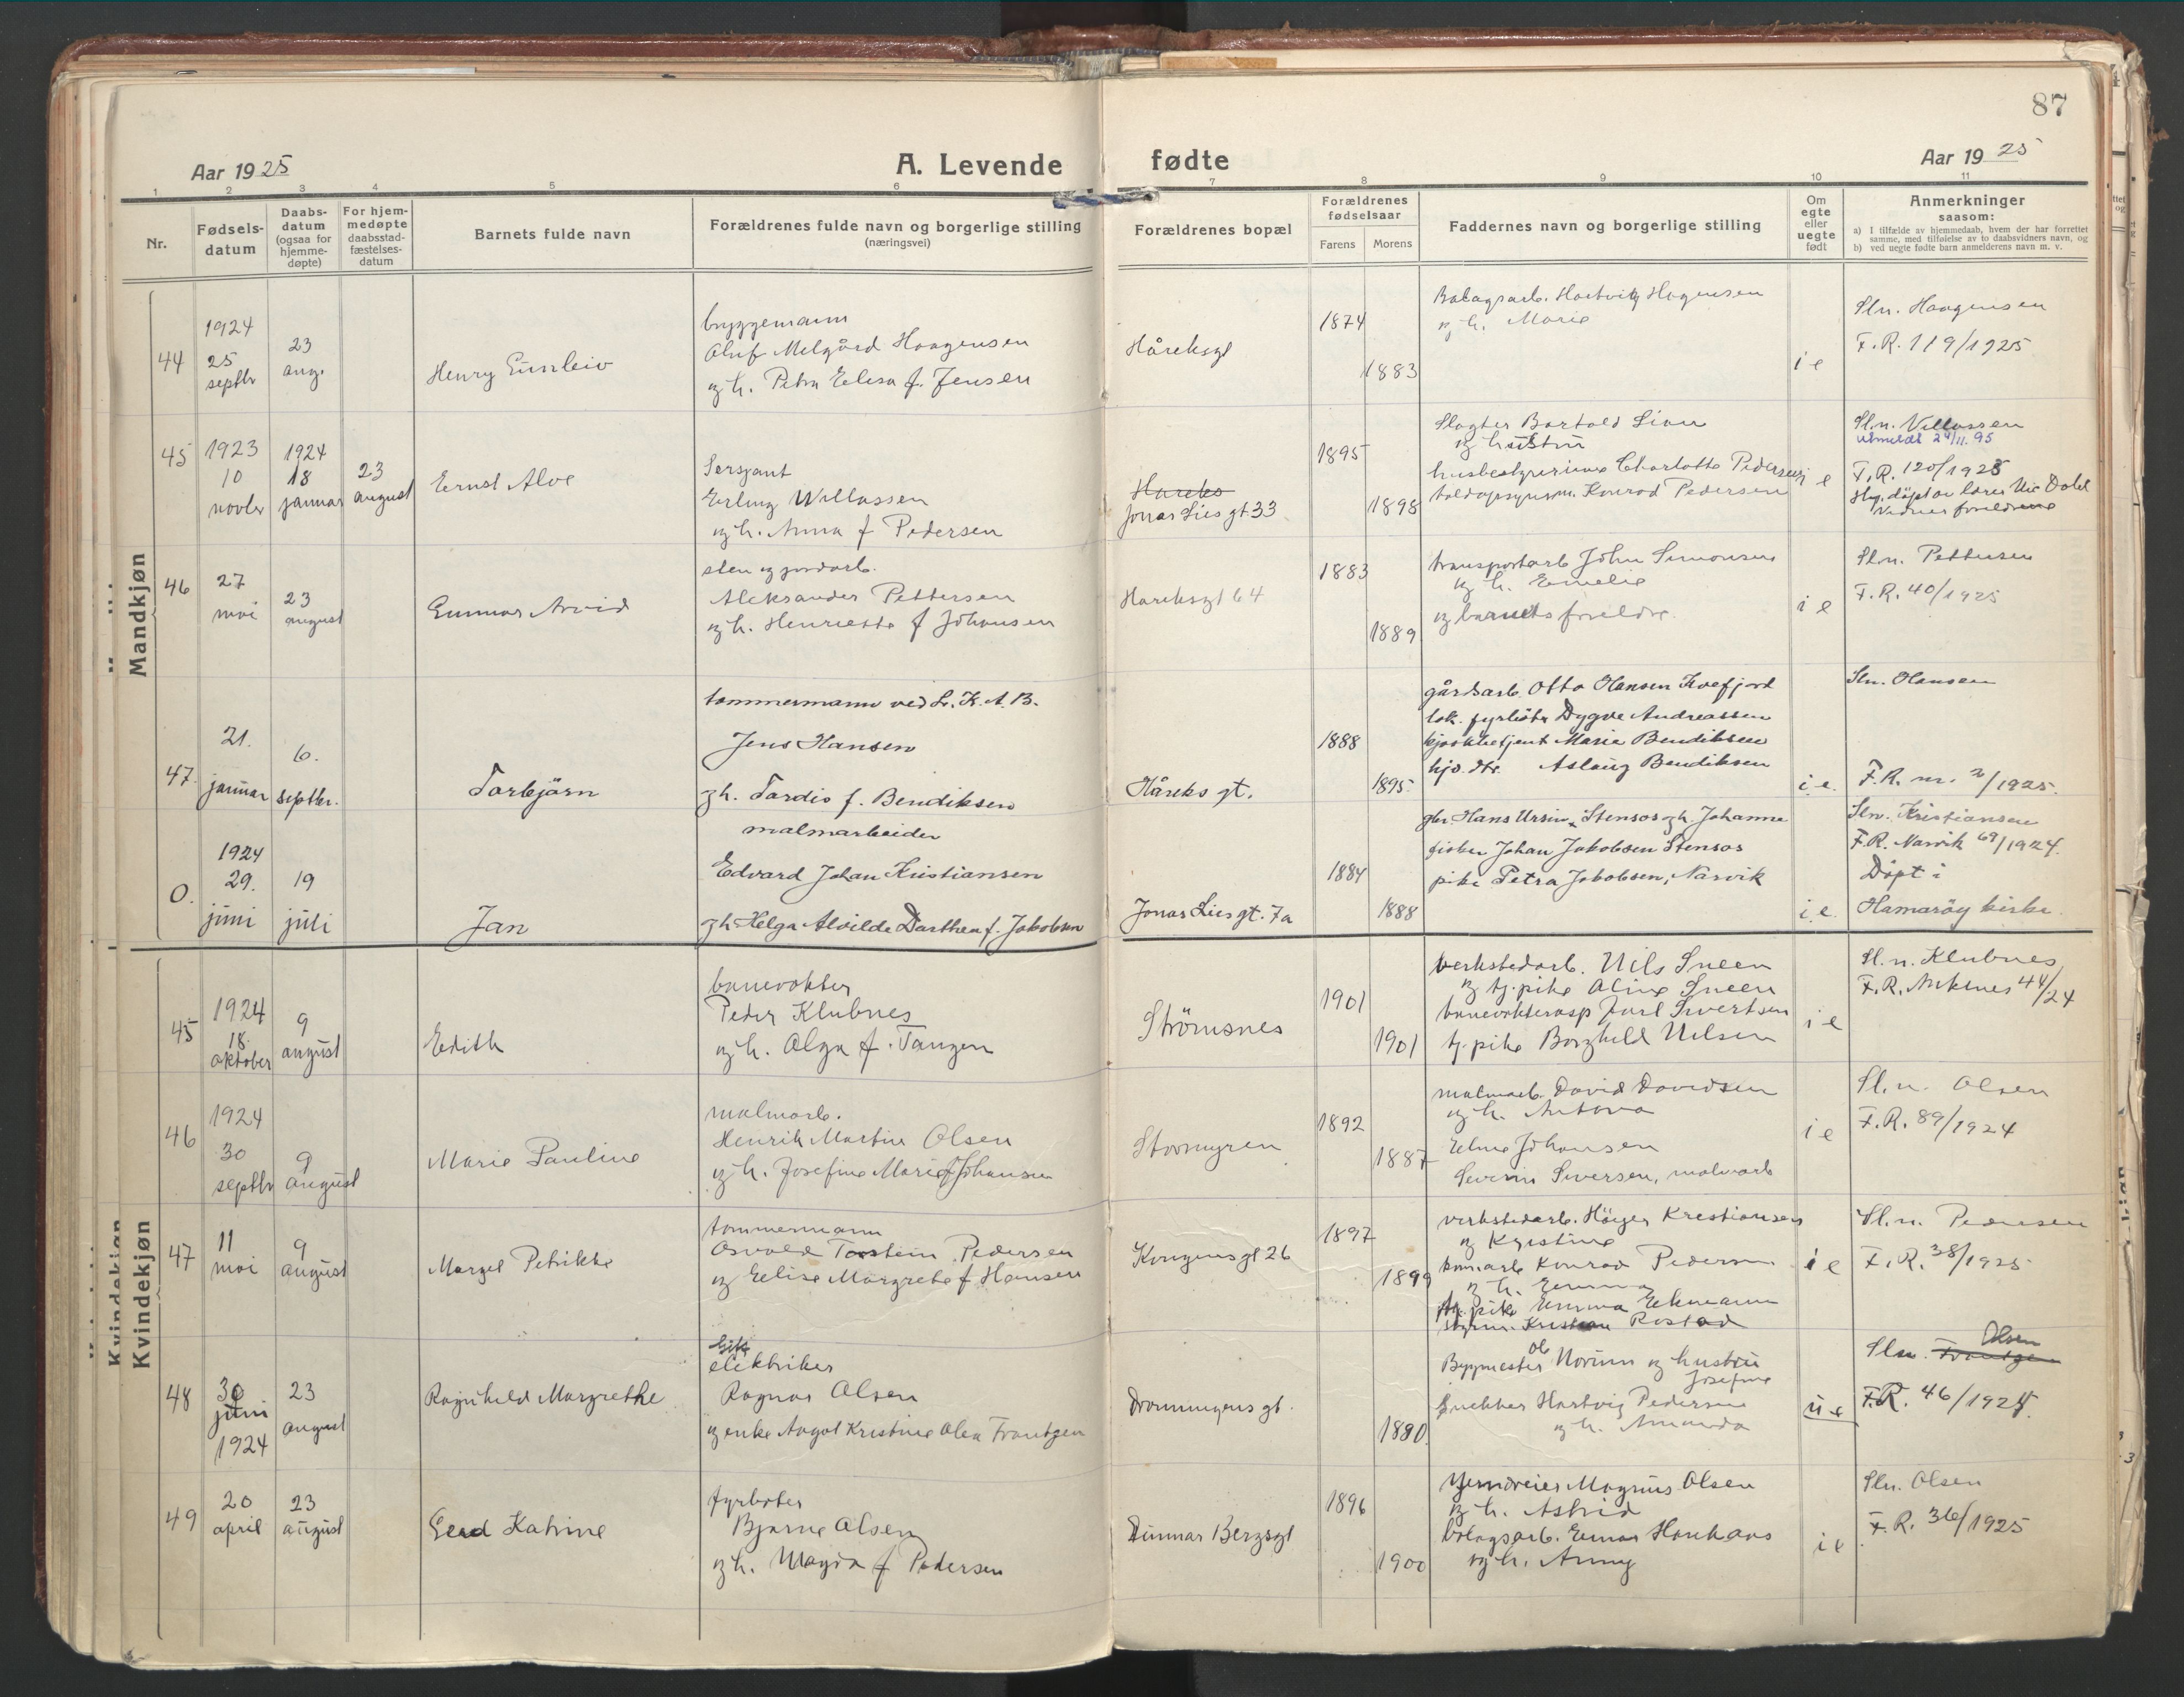 87
Aar 1925
A. Levende fødte
Aar 1925
1 2 3 4 5 6 7 8 9 10 11
Nr.
Fødsels-
datum
Daabs-
datum
(ogsaa for
hjemme-
døpte)
For hjem-
medøpte
daabsstad-
fæstelses-
datum
Barnets fulde navn
Forældrenes fulde navn og borgerlige stilling
(næringsvei)
Forældrenes bopæl
Forældrenes
fødselsaar
Farens
Morens
Faddernes navn og borgerlige stilling
Om
egte
eller
uegte
født
Anmerkninger
saasom:
a) I tilfælde av hjemmedaab, hvem der har forrettet
samme, med tilføielse av to daabsvidners navn, og
b) ved uegte fødte barn anmelderens navn m. v.
Mandkjøn
44
1924
25
septbr
23
aug.
Henry Gunleiv
bryggemann
Oluf Melgård Haagensen
og h. Petra Elisa f. Jensen
Håreksgt
1874
1883
Hartvig Hagensen
og h. Marie
i e
Sln. Haagensen
F.R. 119/1925
45
1923
10
novbr
1924
18
januar
23
august
Ernst Alve
Sersjant
Erling Willassen
og h. Anna f Pedersen
Hareks
Jonas Lies gt 33
1895
1898
Slagter Bartold Lian
og hustru
husbestyrerinne Charlotte Pedersen
Konrad Pedersen
i e
Sl.n. Villassen
utmeldt 24/11.95
F.R. 120/1925
Hj. døpt av lærer Nic Dahl
Vidner foreldrene
46
27
mai
23
august
Gunnar Arvid
sten og jordarb.
Aleksander Pettersen
og h. Henriette f Johansen
Hareksgt 64
1883
1889
transportarb John Simonsen
og h. Emelie
og barnets foreldre.
i e
Sln. Pettersen
F.R. 40/1925
47
21.
januar
6.
septbr.
Torbjörn
tømmermann ved L.K.A.B.
Jens Hansen
og h. Tordis f. Bendiksen
Håreks gt.
1888
1895
gårdsarb. Otto Hansen Kvefjord
lok. fyrbøter Dygve Andreassen
Marie Bendiksen
hjv. dtr. Aslaug Bendiksen
i.e.
Sln. Hansen
F.R. nr. 2/1925.
0.
1924
29.
juni
19
juli
Jan
malmarbeider
Edvard Johan Kristiansen
og h Helga Alvilde Dorthea f. Jakobsen
Jonas Lies gt. 7a
1884
1888
gbr. Hans Ursin Stensos og h. Johanne
fisker Johan Jakobsen Stensos
pike Petra Jakobsen, Narvik
i.e.
Sln. Kristiansen
F.R. Narvik 69/1924.
Døpt i
Hamarøy kirke.
Kvindekjøn
45
1924
18.
oktober
9
august
Edith
banevokter
Peder Klubnes
og h. Olga f. Tangen
Strömsnes
1901
1901
verkstedarb. Nils Sneen
og tj.pike Aline Sneen
banevokterasp Jarl Sivertsen
tj. pike Borghild Nilsen
i e
Sl.n. Klubnes
F.R. Ankenes 44/24
46
1924
30
septbr
9
august
Marie Pauline
malmarb.
Henrik Martin Olsen
og h. Josefine Marie f Johansen
Stormyren
1892
1887
malmarb. David Davidsen
og h. Antona
Johansen
Severin Siversen, malmarb
i e
Sl.n. Olsen
F.R. 89/1924
47
11
mai
9
august
Margel Petrikke
tømmermann
Osvald Torstein Pedersen
og Elise Margrete f Hansen
Kongensgt 26
1897
1899
verkstedarb. Höiger Kristiansen
og Kristine
Konrad Pedersen
og h. Emma
tj. pike Emma Ekmann
Rostad
i e
Sl.n. Pedersen
F.R. 38/1925
48
30
juni
1924
23
august
Ragnhild Margrethe
elektriker
Ragnar Olsen
og enke Aagot Kristine Olea Frantzen
Dronningens gt.
1880.
Byggmester Ol Norum og hustru
Josefine
snekker Hartvig Pedersen
og h. Amanda
u e
Sln. Frantzen Olsen
F.R. 46/1924
49
20
april
23
august
Gerd Katrine
fyrbøter
Bjarne Olsen
og h. Magda f Pedersen
Dinnar Bergsgt
1896
1900
Magnus Olsen
og h. Astrid
bolagsarb. Einar Haukaas
og h. Anny
i e
Sln. Olsen
F.R. 36/1925